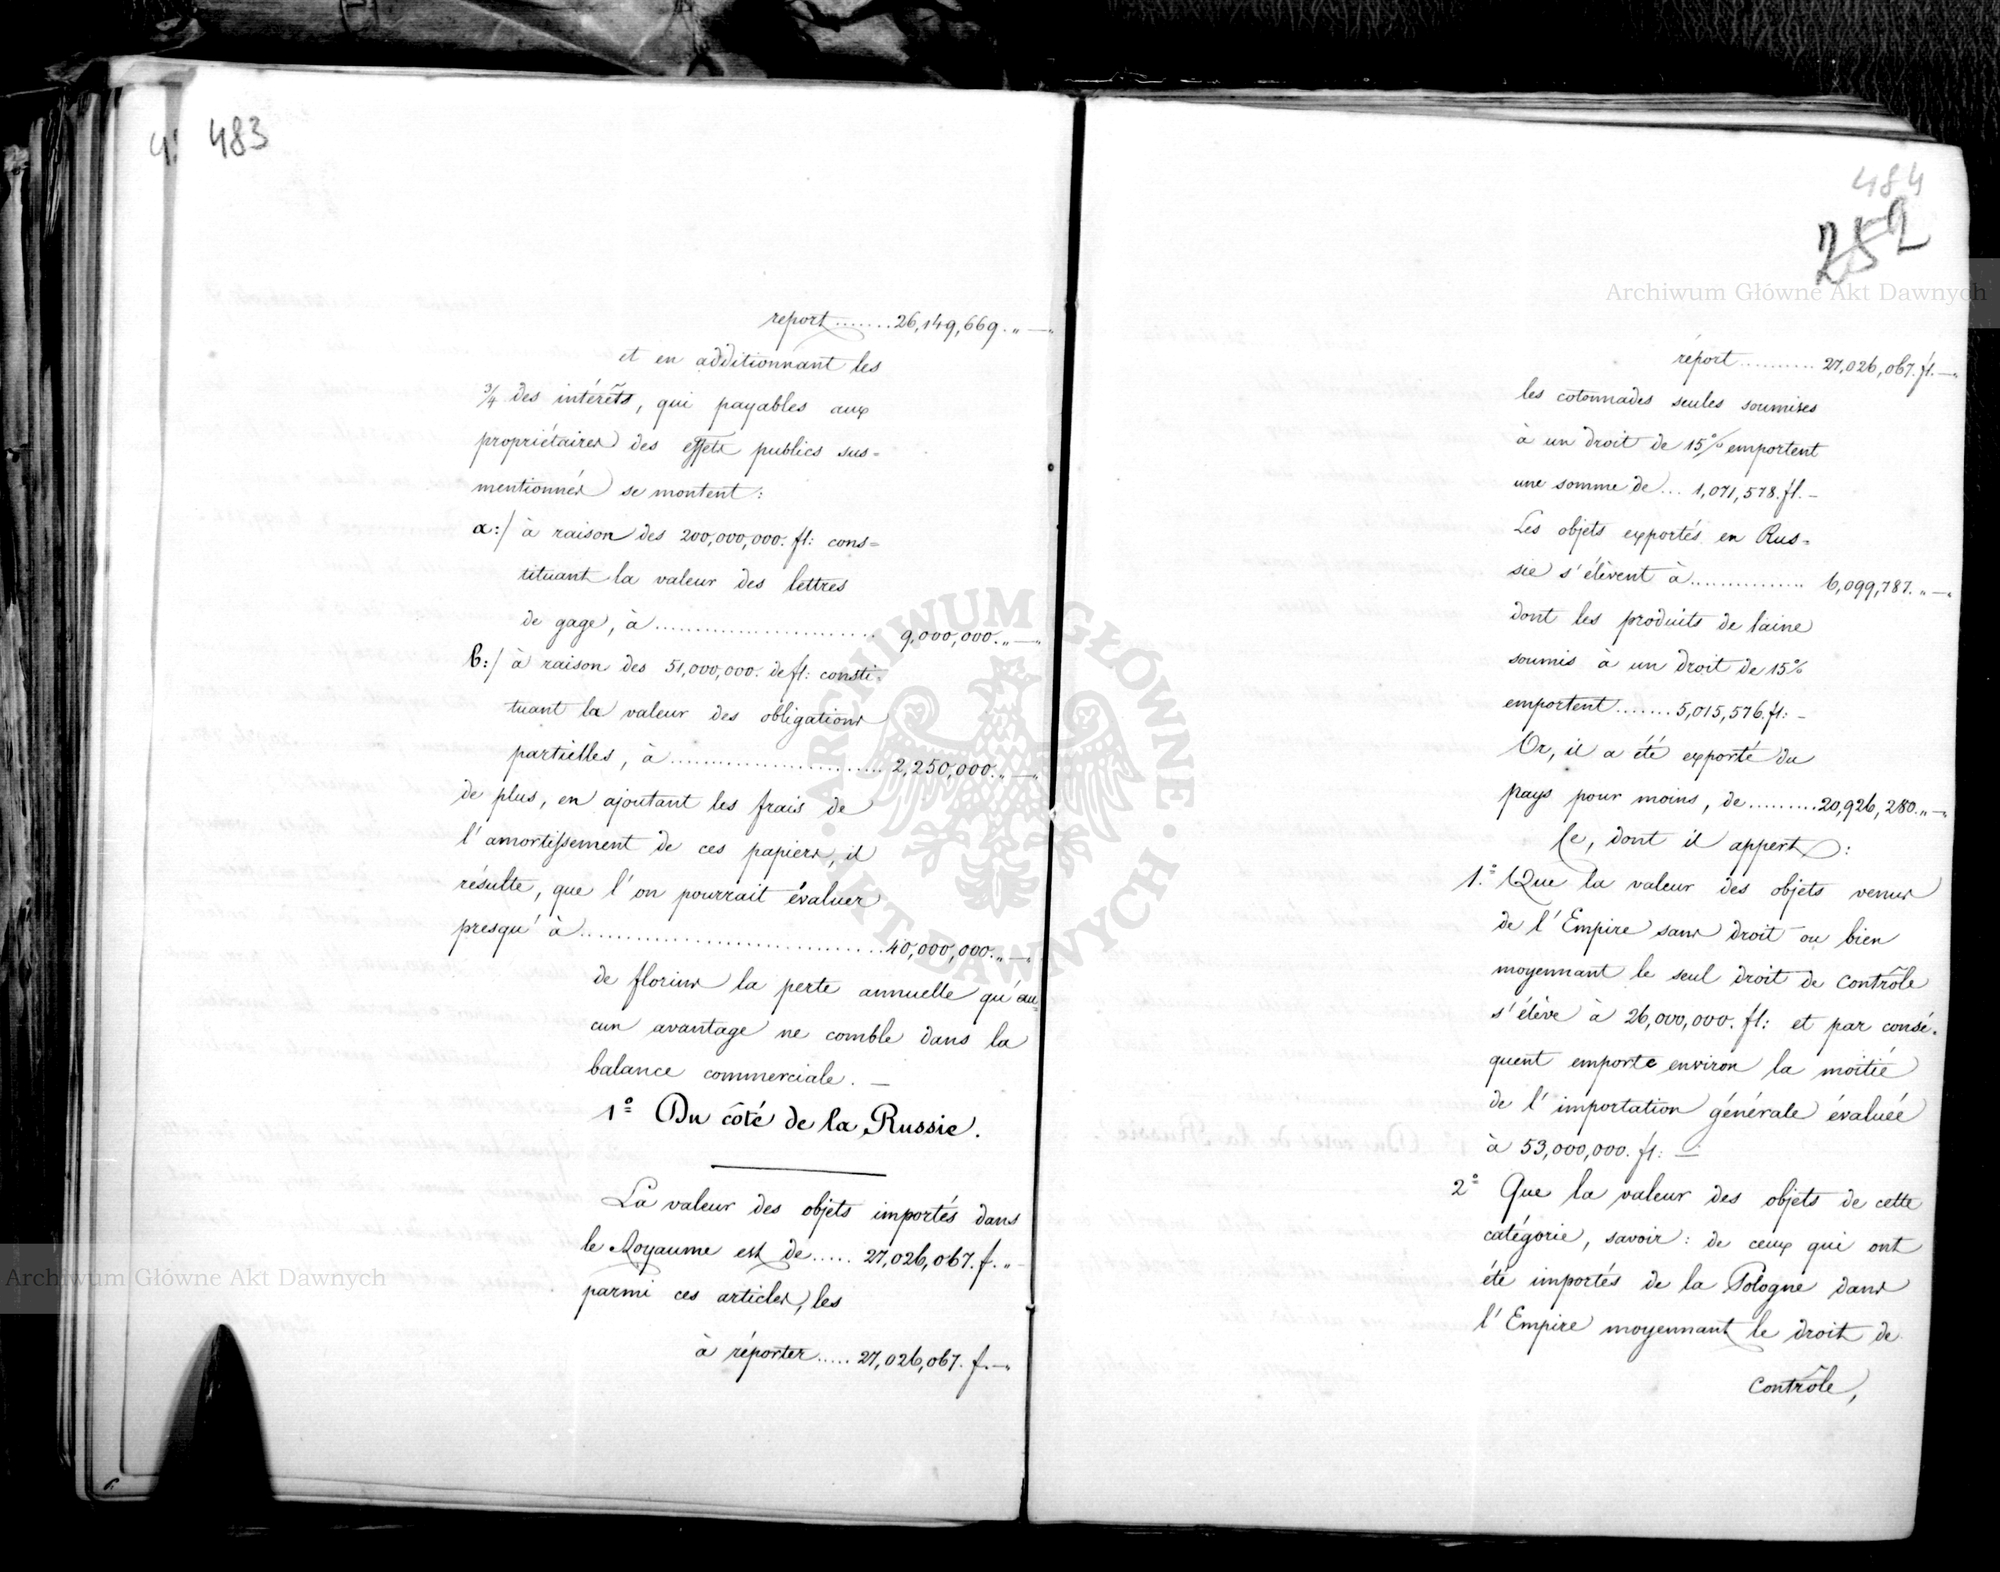 483
report ....... 26,149,669. „ —„
et en additionnant les
3/4 des intérêts, qui payables aux
propriétaires des effets publics sus=
mentionnés se montent:
a:/ à raison des 200,000,000. fl: cons=
tituant la valeur des lettres
de gage, à ........................ 9,000,000. „ —„
b:/ à raison des 51,000,000. de fl: consti=
tuant la valeur des obligations
partielles, à ........................ 2,250,000. „ —„
de plus, en ajoutant les frais de
l'amortissement de ces papiers, il
résulte, que l'on pourrait évaluer
presqu'à ................................ 40,000,000. „ —„
de florins la perte annuelle qu'au=
cun avantage ne comble dans la
balance commerciale. —
1º Du côté de la Russie.
La valeur des objets importés dans
le Royaume est de ..... 27,026,067. f. „ -
parmi ces articles, les
à réporter ..... 27,026,067. f. —„
484
252
réport .......... 27,026,067. fl. —„
les cotonnades seules soumises
à un droit de 15% emportent
une somme de ... 1,071,578. fl. -
Les objets exportés en Rus=
sie s'élèvent à .............. 6,099,787. „ —„
dont les produits de laine
soumis à un droit de 15%
emportent ....... 5,015,576. fl: -
Or, il a été exporté du
pays pour moins, de ......... 20,926,280. „ —„
Ce, dont il appert:
1.º Que la valeur des objets venus
de l'Empire sans droit ou bien
moyennant le seul droit de contrôle
s'élève à 26,000,000. fl: et par consé=
quent emporte environ la moitié
de l'importation générale évaluée
à 53,000,000. fl: —
2º Que la valeur des objets de cette
catégorie, savoir: de ceux qui ont
été importés de la Pologne dans
l'Empire moyennant le droit de
contrôle,
Archiwum Główne Akt Dawnych
Archiwum Główne Akt Dawnych
ARCHIWUM GŁÓWNE · AKT DAWNYCH ·